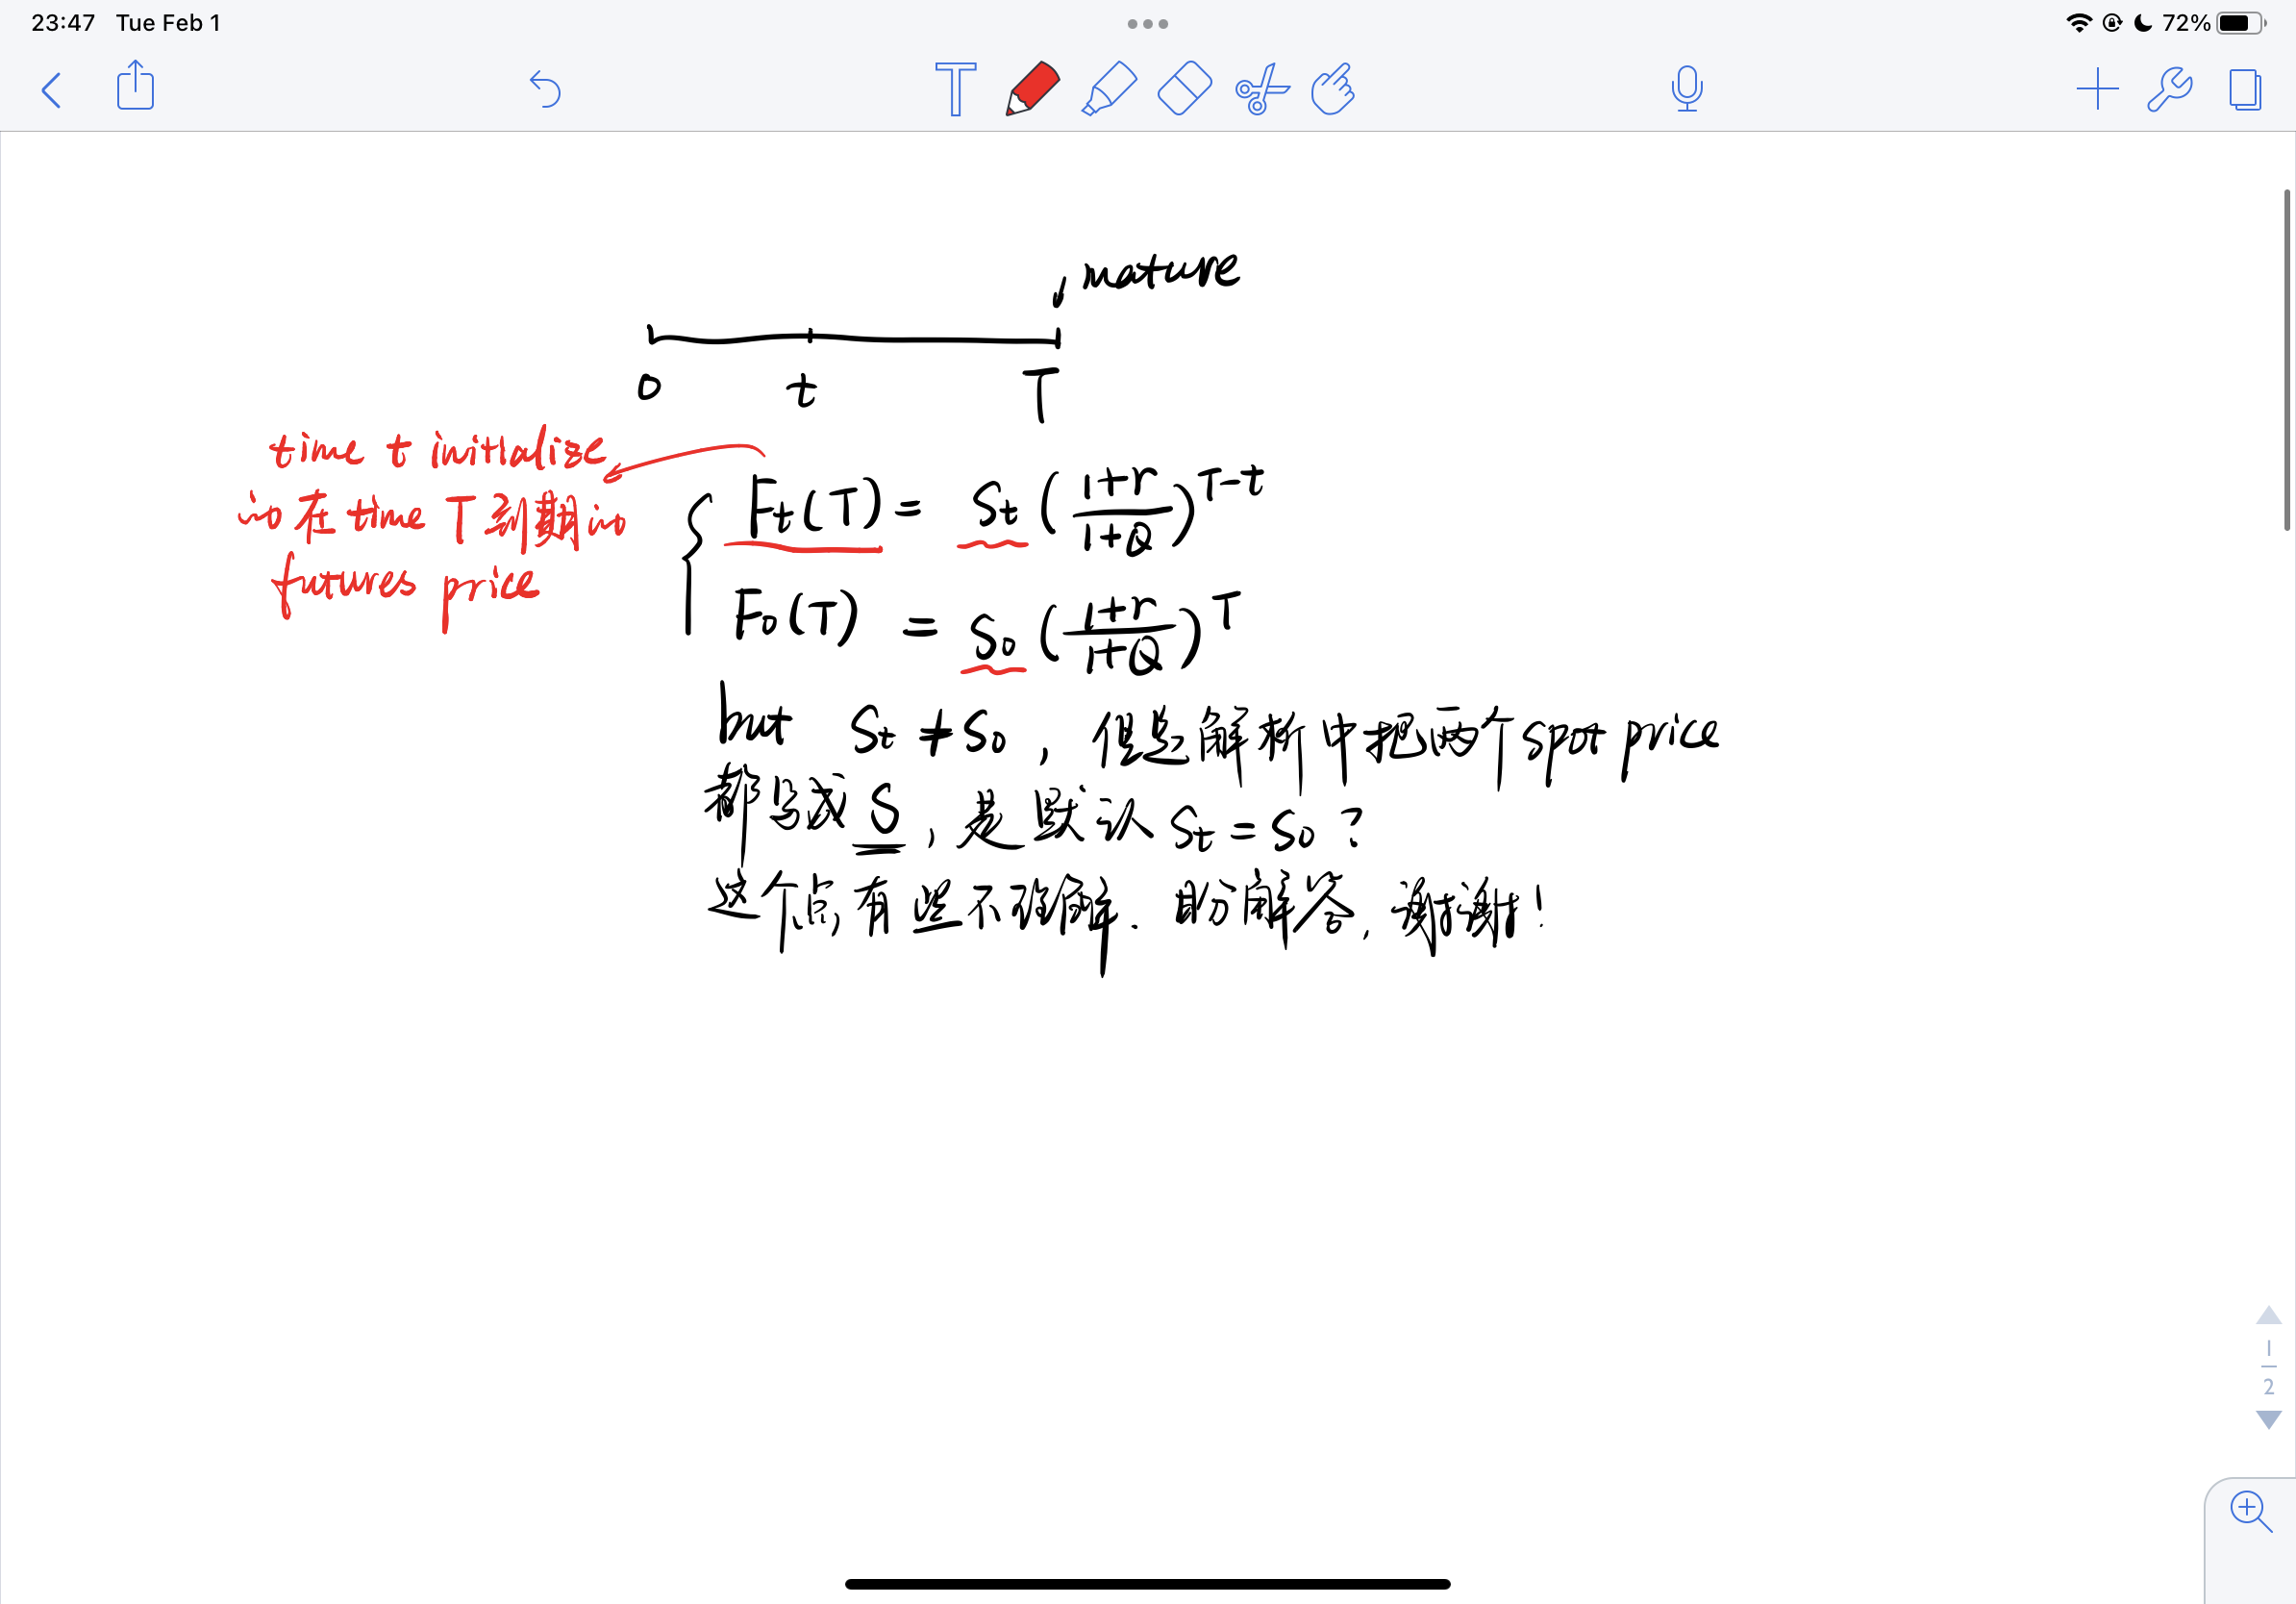 23:47 Tue Feb 1
72%
mature
0 t T
time t initialize
的在time T到期的
futures price
Ft(T) = St((1+r)/(1+Q))^(T-t)
F0(T) = S0((1+r)/(1+Q))^T
but St ≠ S0, 但是解析中把两个spot price
都写成S, 是默认St = S0?
这个点有些不理解. 求助解答, 谢谢!
1
2